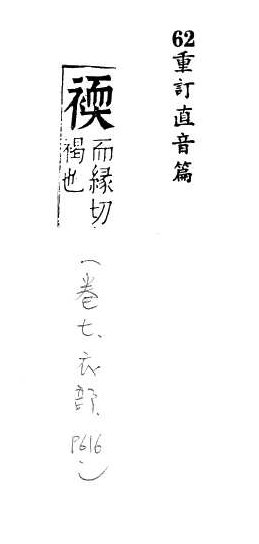 62重訂直音篇
䙇
而緣切
褐也
（卷七、衣部、P616）